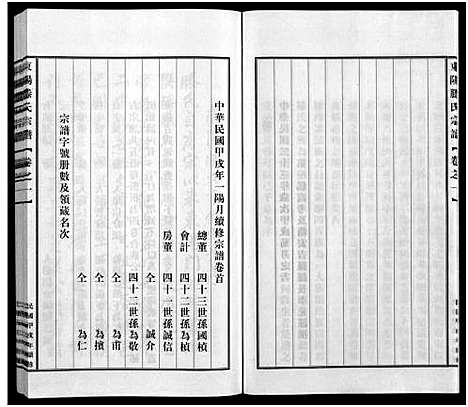 東陽滕氏宗譜【卷之一
中華民國甲戌年一陽月續修宗譜卷首
總董 四十三世孫國楨
會計 四十二世孫為楨
房董 四十一世孫誠信
仝 誠介
四十二世孫為敬
仝 為甫
仝 為擯
仝 為仁
宗譜字號册數及領藏名次
東陽滕氏宗譜【卷之一